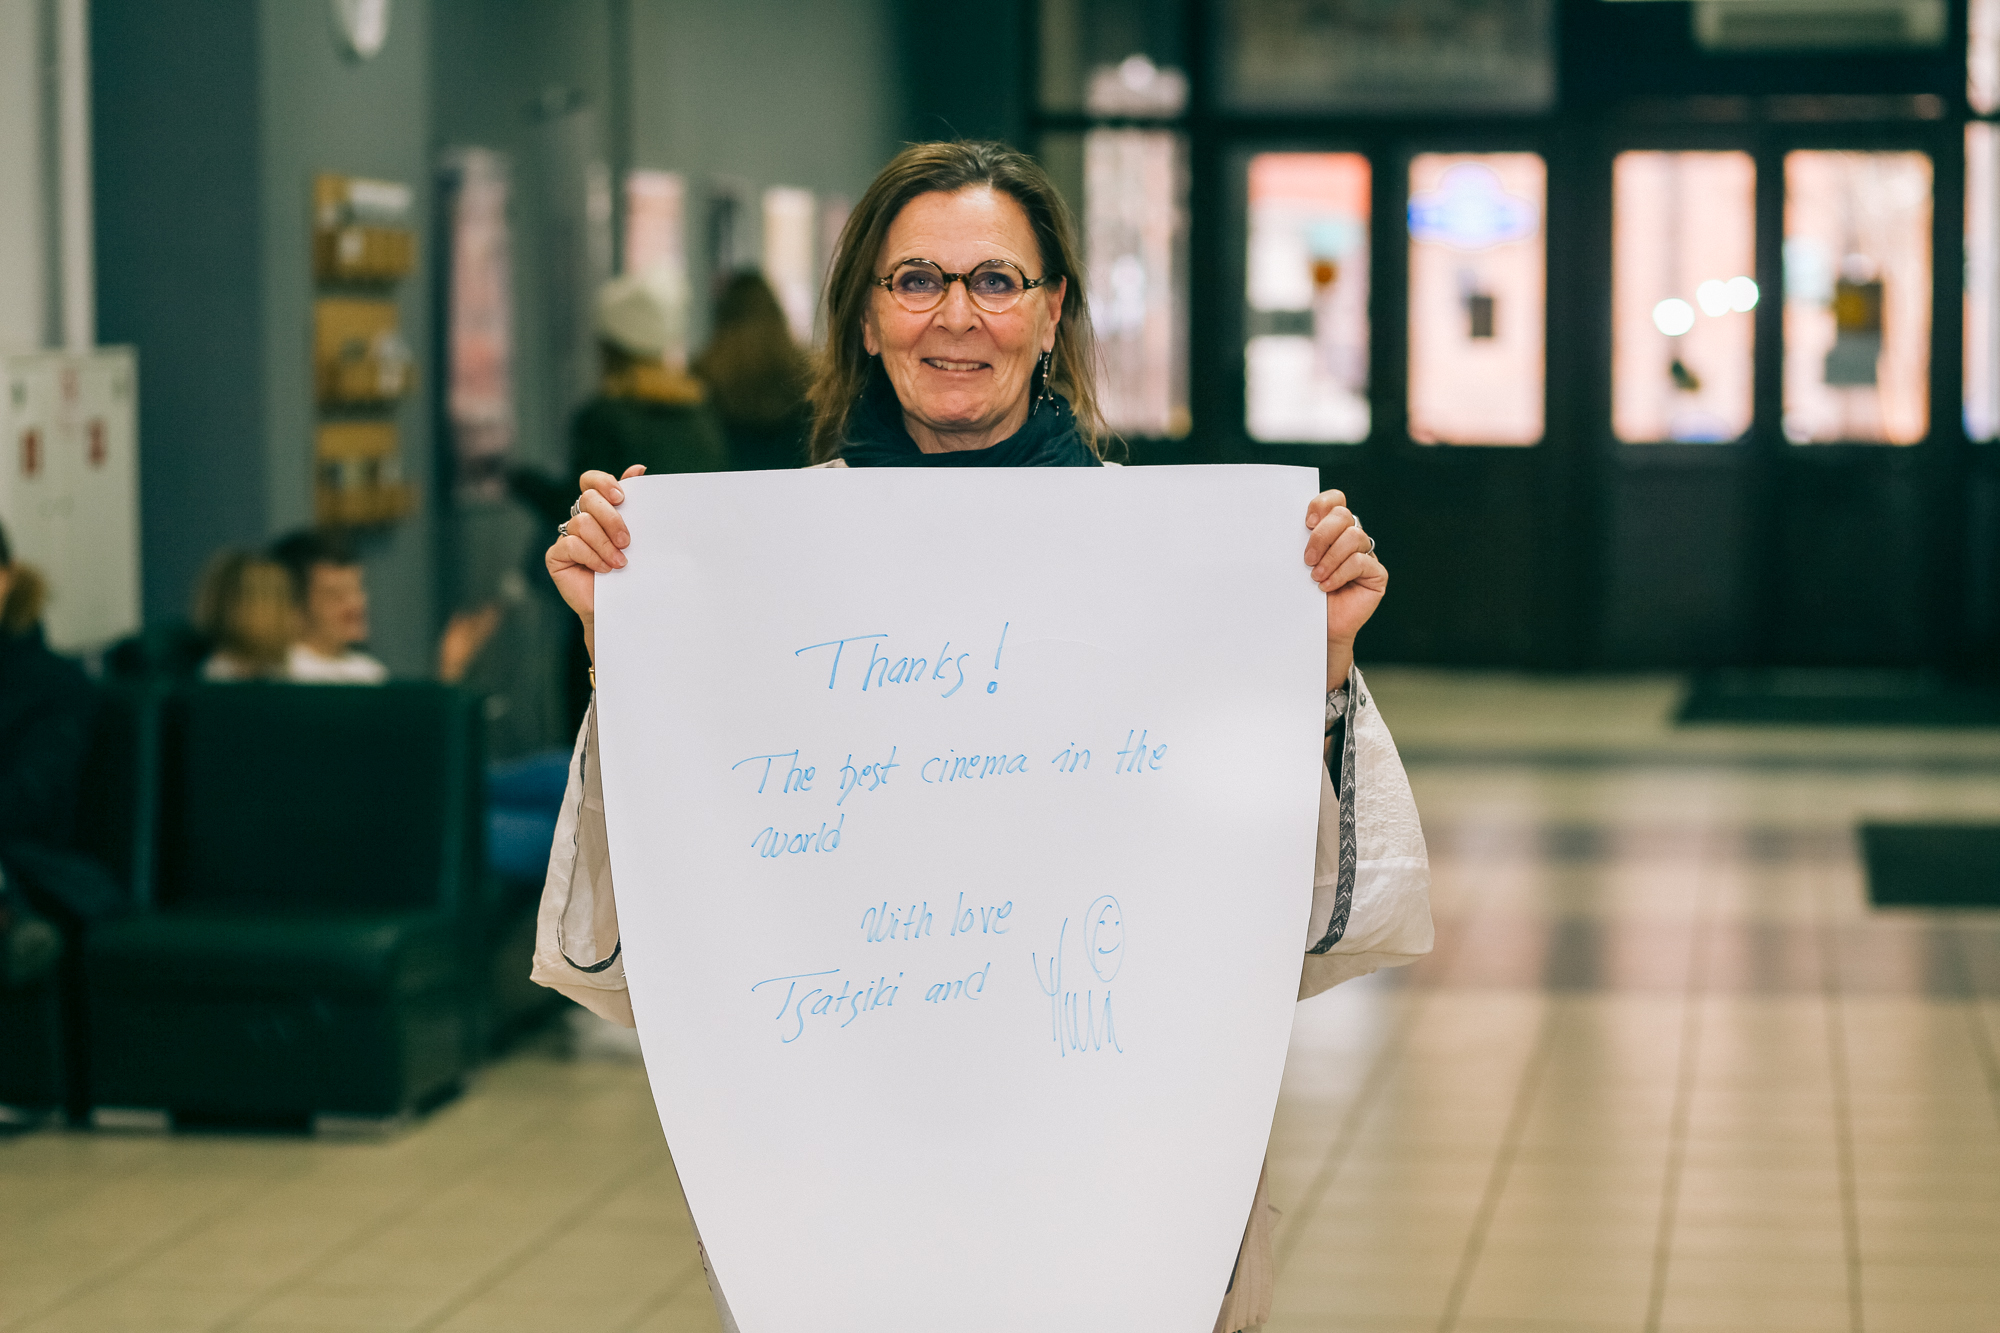 Thanks!
The best cinema in the
world
With love
Tsatsiki and